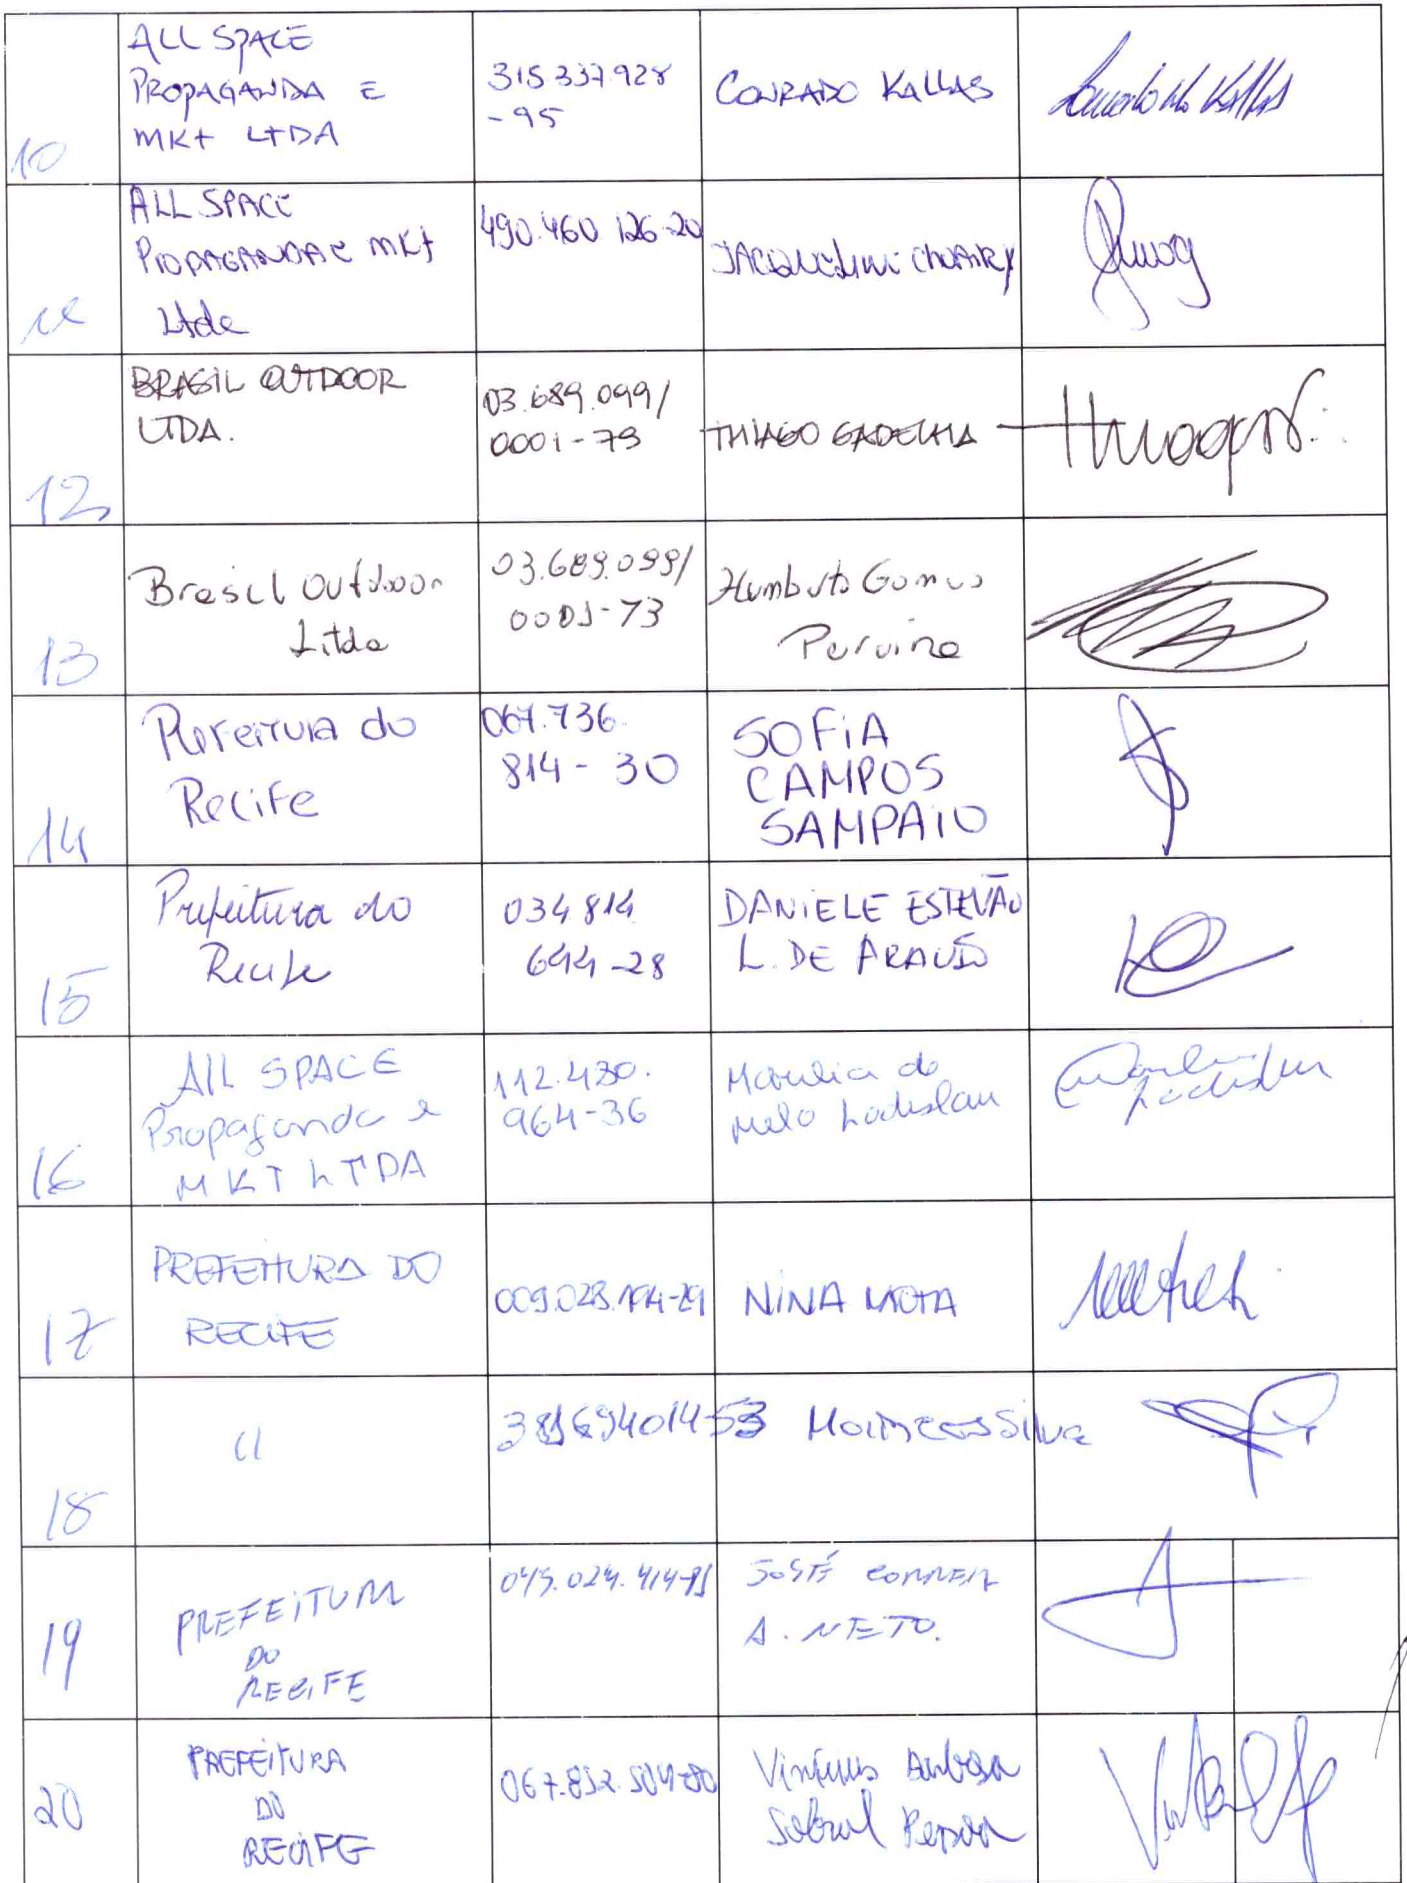 10
ALL SPACE
PROPAGANDA E
MKT LTDA
315.337.928
-95
CONRADO KALLAS
11
ALL SPACE
PROPAGANDA E MKT
Ltda
490.460 126-20
JACQUELINE CHOAIRY
12
BRASIL OUTDOOR
LTDA.
03.689.099/
0001-73
THIAGO GADELHA
13
Brasil Outdoor
Ltda
03.689.099/
0001-73
Humberto Gomes
Pereira
14
Prefeitura do
Recife
067.736.
814-30
SOFIA
CAMPOS
SAMPAIO
15
Prefeitura do
Recife
034 814
644-28
DANIELE ESTEVÃO
L. DE ARAUJO
16
All SPACE
Propaganda e
MKT LTDA
112.430.
964-36
Marilia de
Melo Ladislau
17
PREFEITURA DO
RECIFE
NINA MOTA
18
19
PREFEITURA
DO
RECIFE
JOSÉ CORREIA
A. NETO.
20
PREFEITURA
DO
RECIFE
Sobral